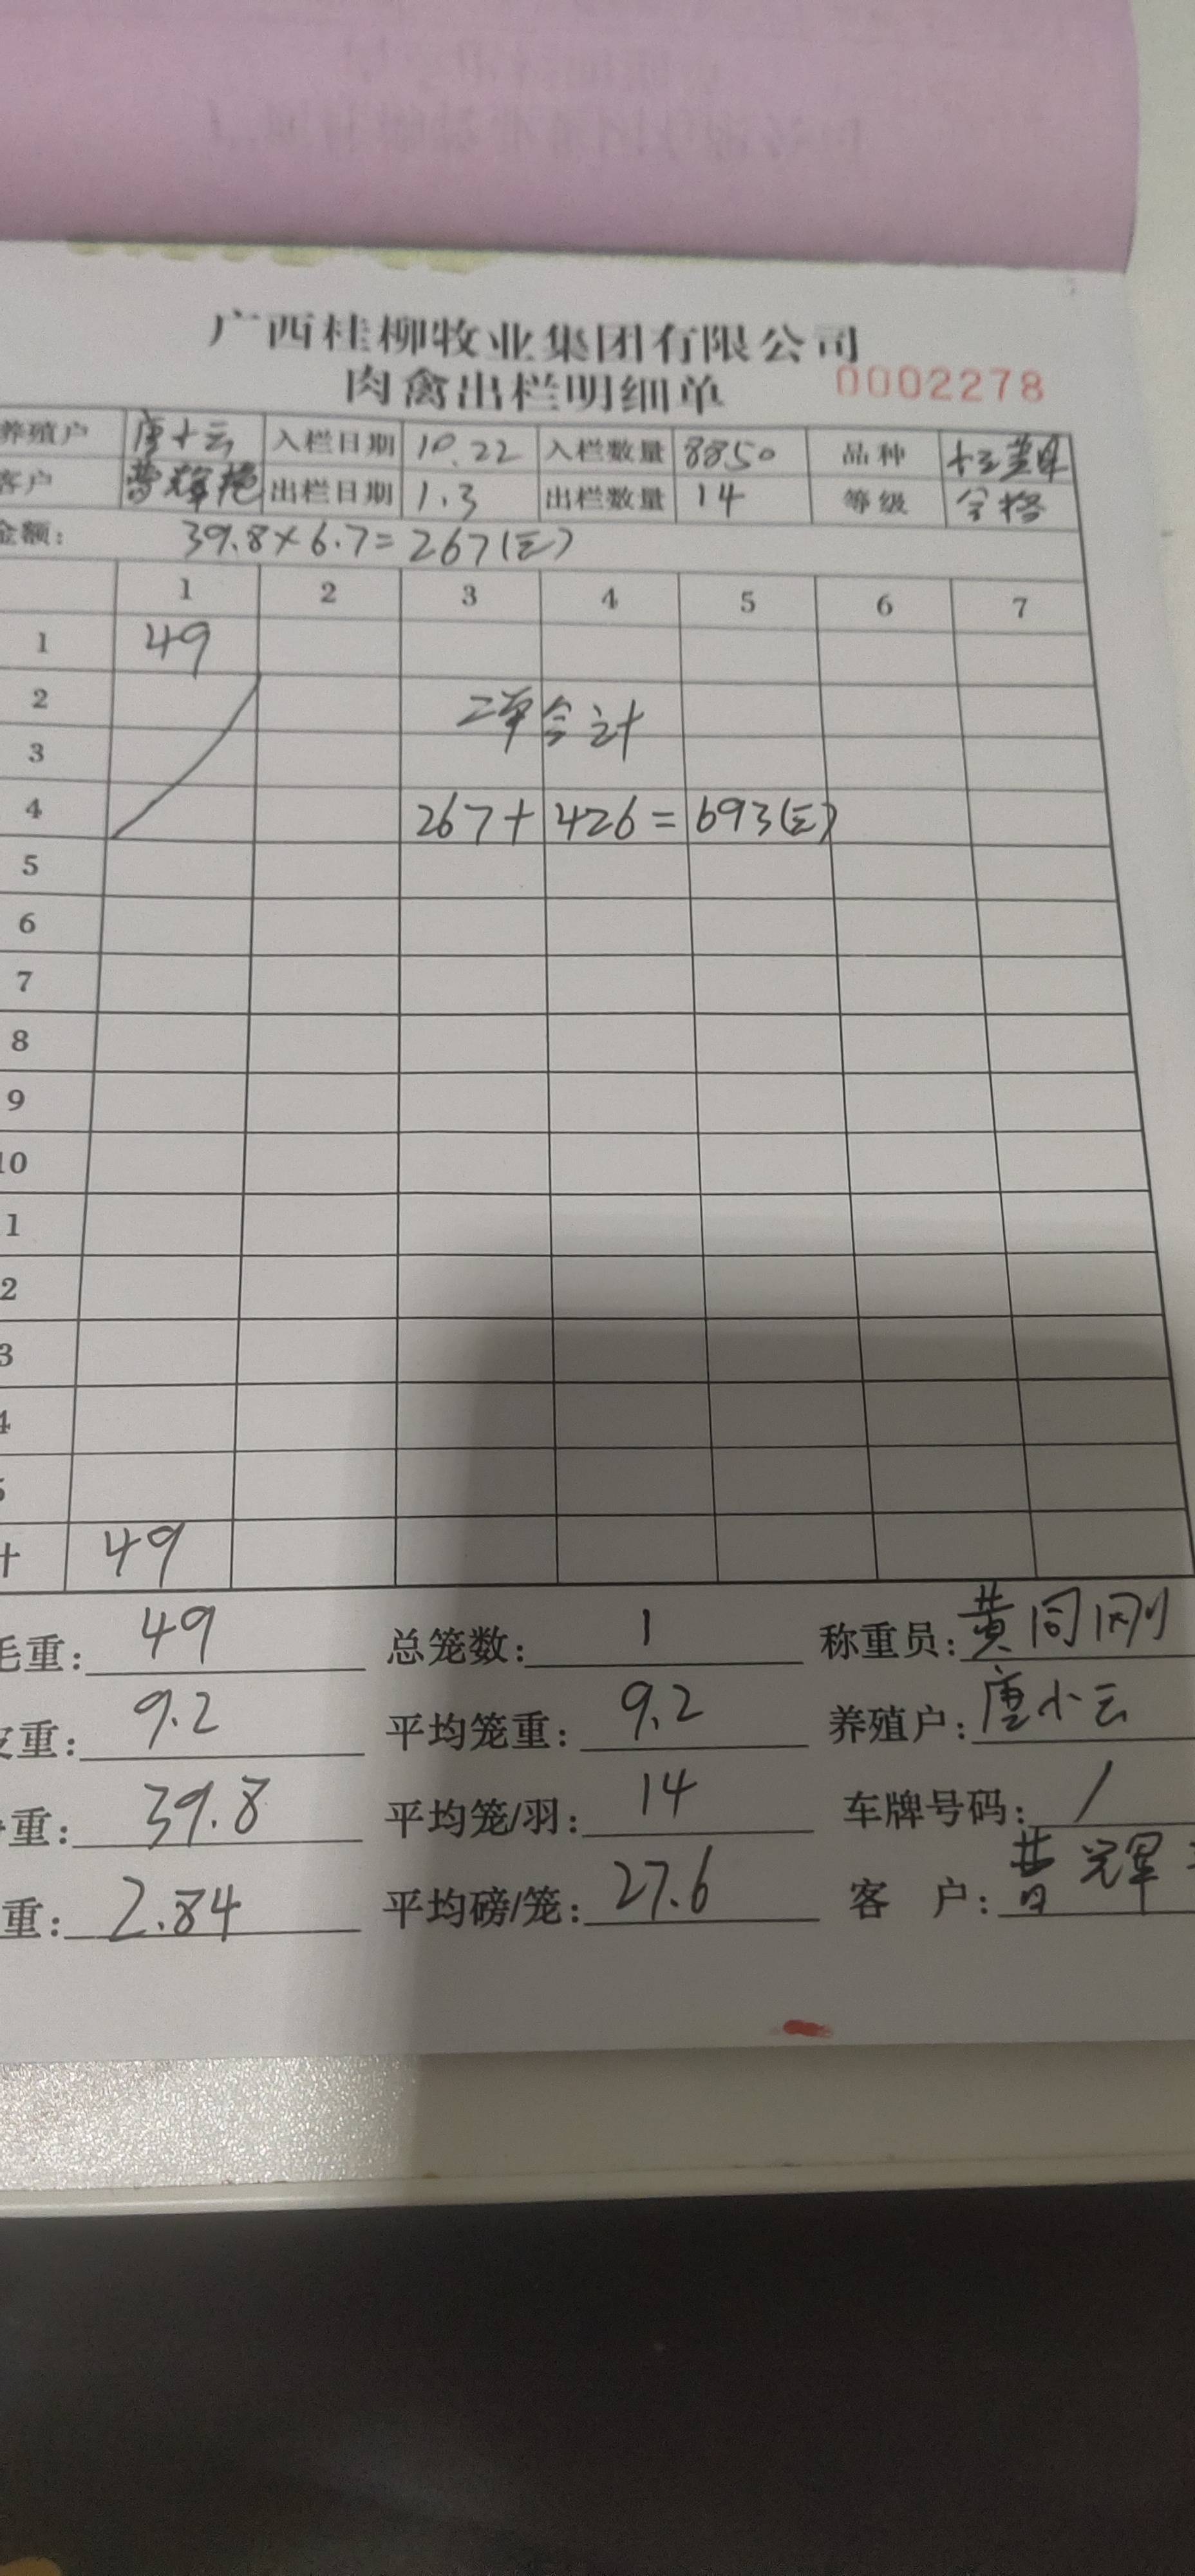 广西桂柳牧业集团有限公司
肉禽出栏明细单 0002278
养殖户 唐小云 入栏日期 10.22 入栏数量 8850 品种
客户 曹辉艳 出栏日期 1.3 出栏数量 14 等级 合格
金额: 39.8×6.7=267(元)
1 2 3 4 5 6 7
1 49
2 二单合计
3
4 267+426=693(元)
5
6
7
8
9
10
1
2
3
4
5
计 49
毛重: 49 总笼数: 1 称重员: 黄同刚
皮重: 9.2 平均笼重: 9.2 养殖户: 唐小云
重: 39.8 平均笼/羽: 14 车牌号码: /
重: 2.84 平均磅/笼: 27.6 客 户: 曹辉